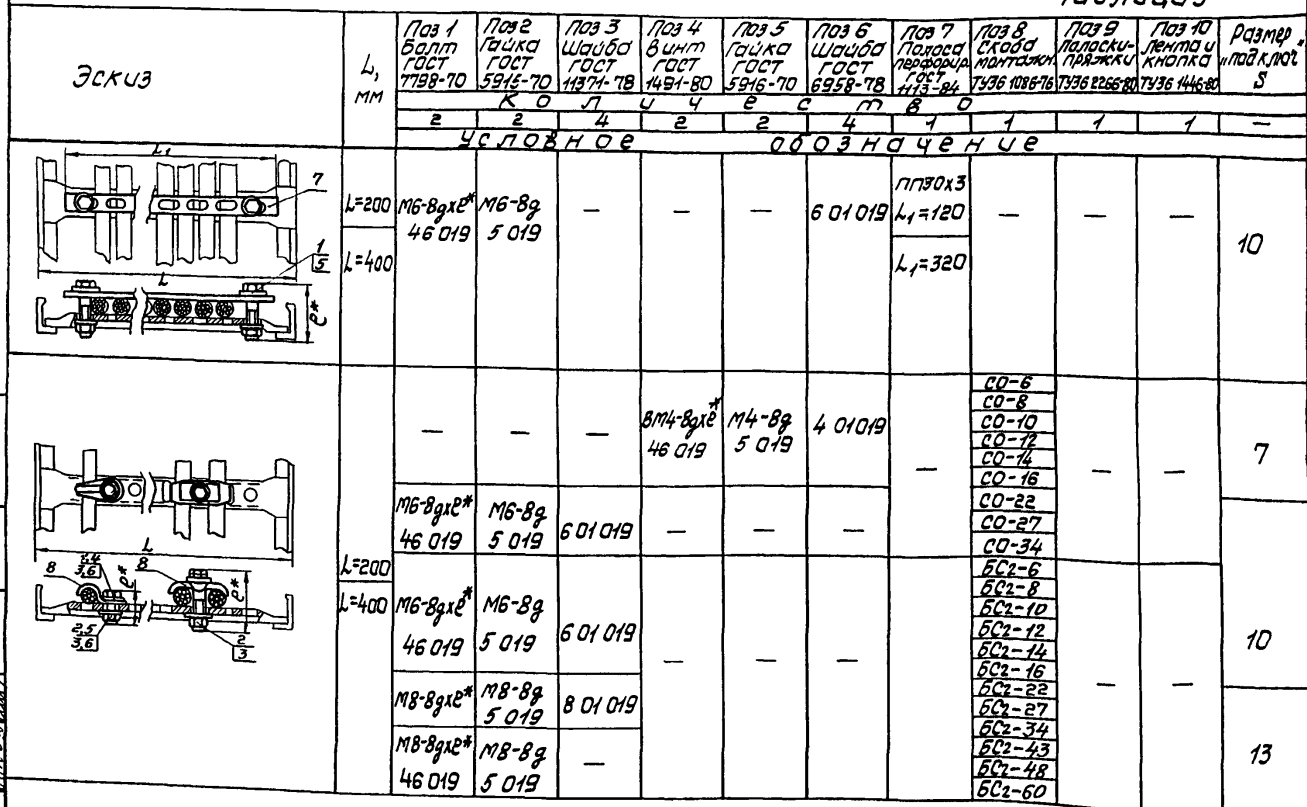 Эскиз
L, мм
Поз 1 Болт ГОСТ 7798-70
Поз 2 Гайка ГОСТ 5915-70
Поз 3 Шайба ГОСТ 11371-78
Поз 4 Винт ГОСТ 1491-80
Поз 5 Гайка ГОСТ 5916-70
Поз 6 Шайба ГОСТ 6958-78
Поз 7 Полоса перфорир. ГОСТ 1113-84
Поз 8 Скоба монтажн. ТУ36 1086-76
Поз 9 Полоски-пряжки ТУ36 2266-80
Поз 10 Лента и кнопка ТУ36 1446-80
Размер „под ключ" S
Количество
2 2 4 2 2 4 1 1 1 1 —
Условное обозначение
L₁
7
1
5
L
ℓ*
L=200
L=400
М6-8gхℓ*
46 019
М6-8g
5 019
—
—
—
6 01 019
ПП30х3
L₁=120
L₁=320
—
—
—
10
L
8
2,4
3,6
ℓ*
8
ℓ*
2,5
3,6
2
3
L=200
L=400
—
—
—
ВМ4-8gхℓ*
46 019
М4-8g
5 019
4 01019
—
СО-6
СО-8
СО-10
СО-12
СО-14
СО-16
—
—
7
М6-8gхℓ*
46 019
М6-8g
5 019
6 01 019
—
—
—
СО-22
СО-27
СО-34
М6-8gхℓ*
46 019
М6-8g
5 019
6 01 019
—
—
—
—
БС2-6
БС2-8
БС2-10
БС2-12
БС2-14
БС2-16
БС2-22
БС2-27
БС2-34
БС2-43
БС2-48
БС2-60
—
—
10
М8-8gхℓ*
М8-8g
5 019
8 01 019
13
М8-8gхℓ*
46 019
М8-8g
5 019
—